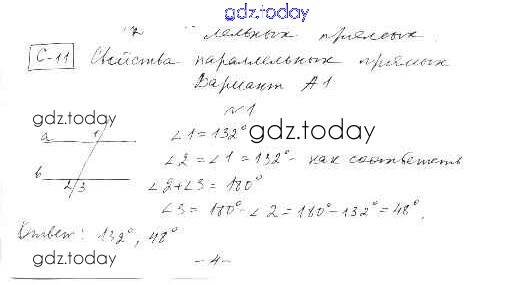 gdz.today
лельных прямых.
С-11 Свойства параллельных прямых
Вариант А1
№1
gdz.today
a 1 ∠1 = 132° gdz.today
∠2 = ∠1 = 132° - как соответств
b 2 3 ∠2 + ∠3 = 180°
∠3 = 180° - ∠2 = 180° - 132° = 48°.
Ответ: 132°, 48°
gdz.today
-4-